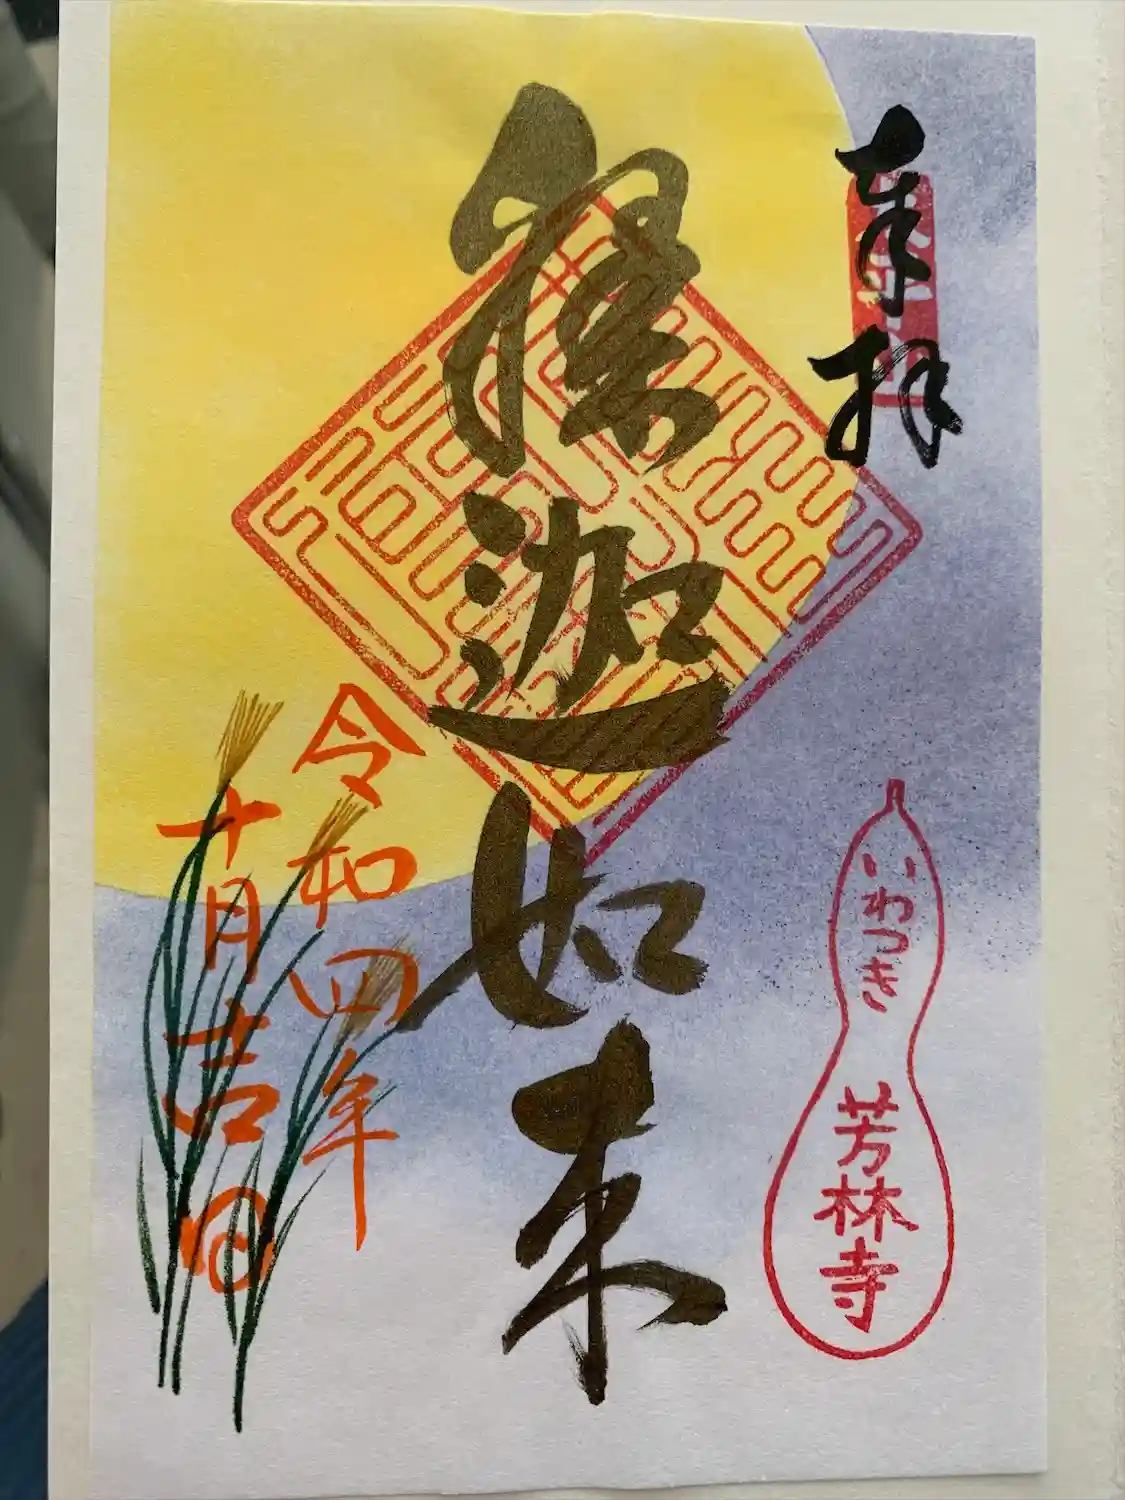 奉拝
釋迦如来
令和四年
十月吉日
いわつき
芳林寺